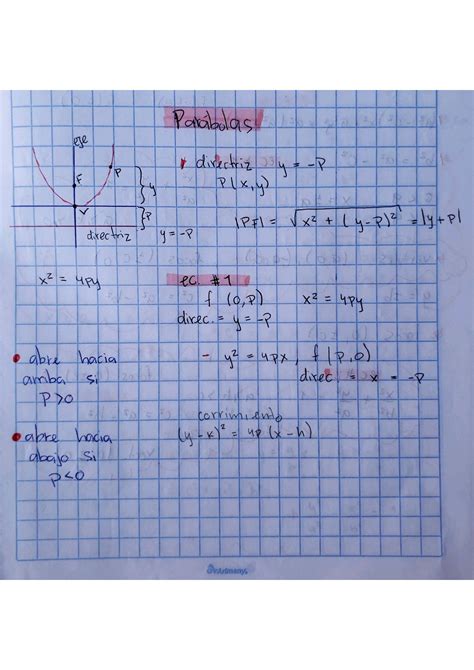 Parábolas
eje
F
P
y
V
P
directriz y = -P
directriz y = -P
P(x,y)
|PF| = √x² + (y-P)² = |y+P|
x² = 4Py
ec. #1
f (0,P) x² = 4Py
direc. = y = -P
• abre hacia
arriba si
P>0
- y² = 4Px, f(P,0)
direc. = x = -P
corrimiento
(y-k)² = 4P(x-h)
• abre hacia
abajo si
P<0